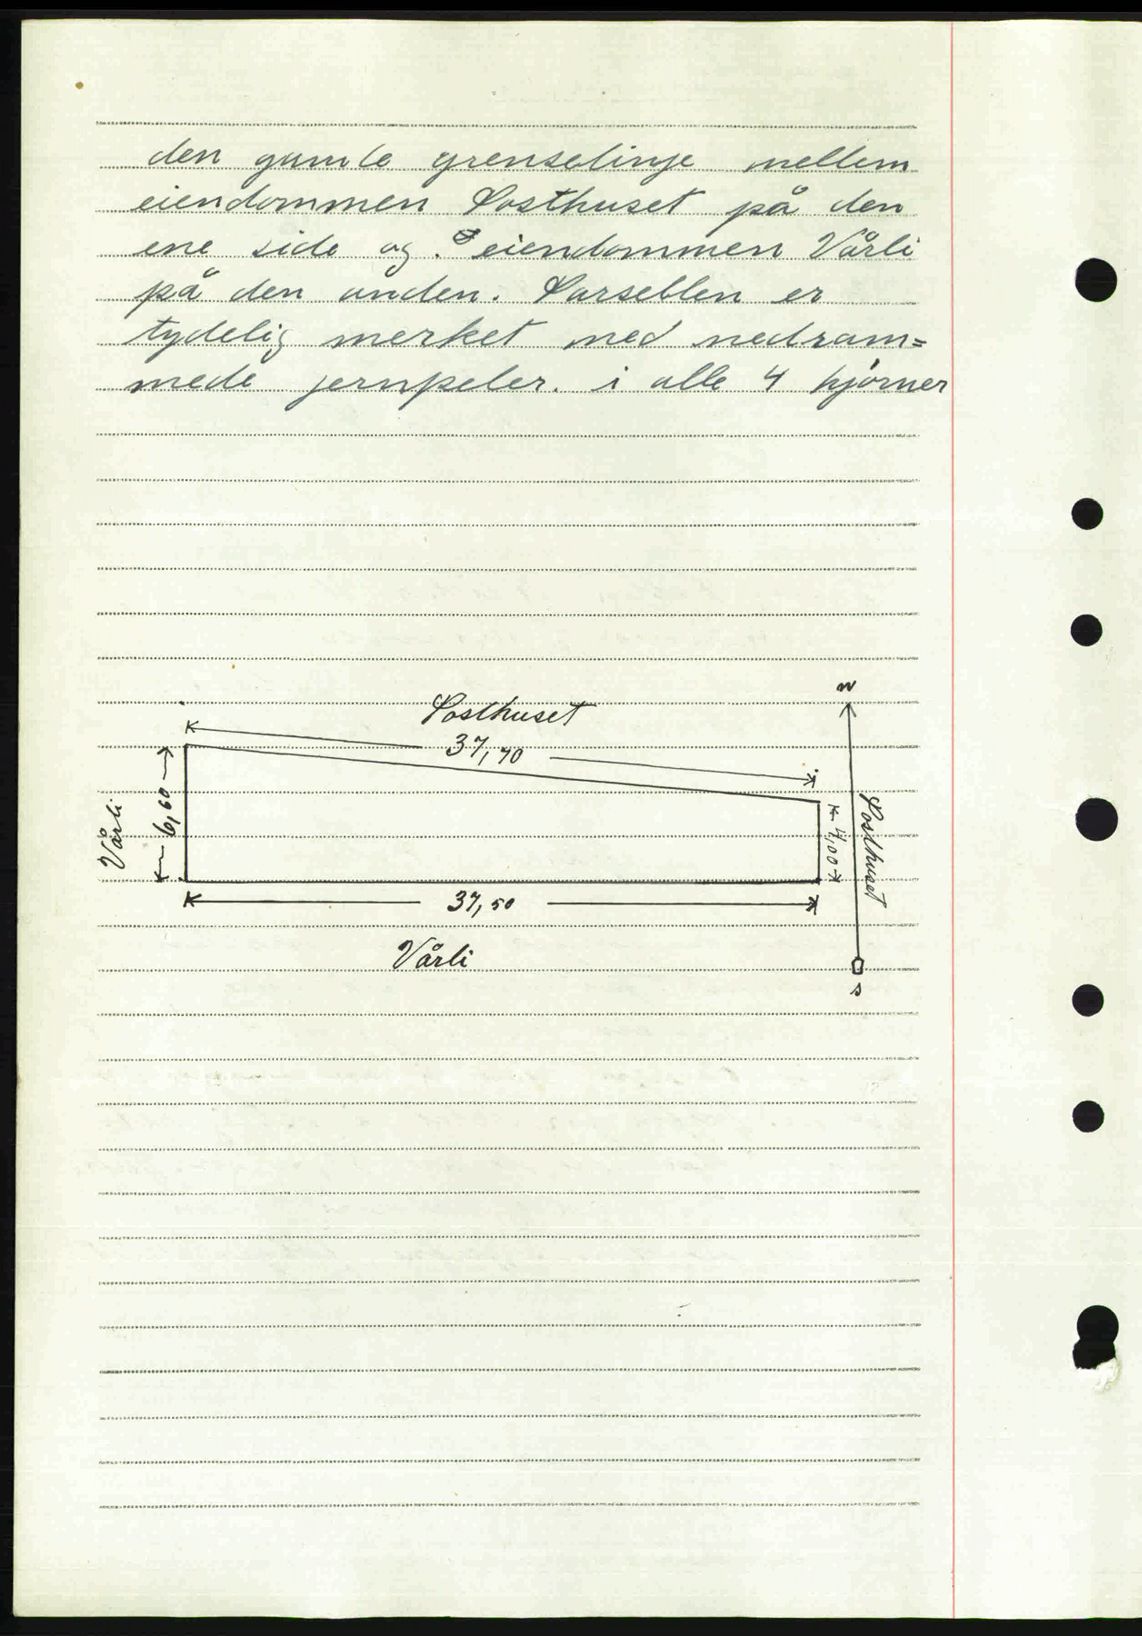 den gamle grenselinje mellem
eiendommen Posthuset på den
ene side og eiendommen Vårli
på den anden. Parsellen er
tydelig merket med nedram=
mede jernpeler. i alle 4 hjørner
N
Posthuset
37,70
6,60
Vårli
4,00
Posthuset
37,50
Vårli
S